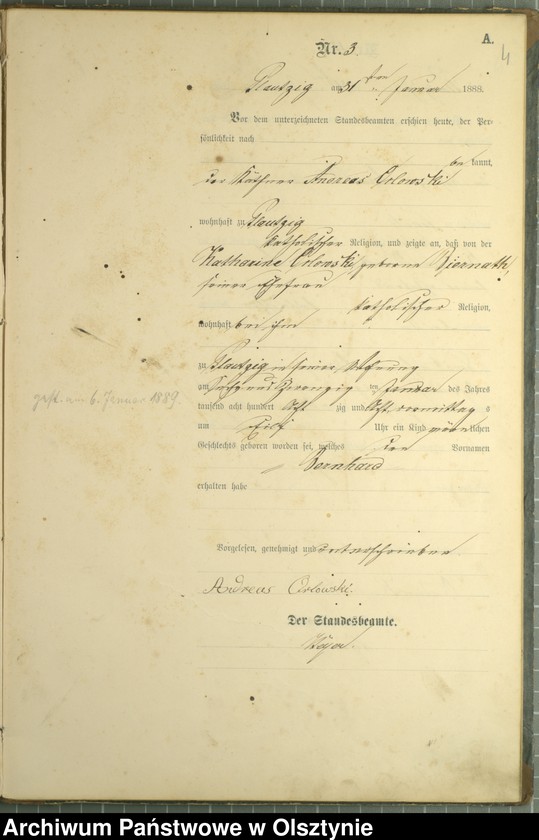 A.
4
Nr. 3.
Plautzig am 31 ten Januar 1888.
Vor dem unterzeichneten Standesbeamten erschien heute, der Per-
sönlichkeit nach
be kannt,
der Käthner Andreas Orlowski
wohnhaft zu Plautzig
katholischer Religion, und zeigte an, daß von der
Katharine Orlowski, geborne Biernath,
seiner Ehefrau
katholischer Religion,
wohnhaft bei ihm
zu Plautzig in seiner Wohnung
am Sechs und Zwanzig ten Januar des Jahres
tausend acht hundert Acht zig und Acht vormittag s
um Elf Uhr ein Kind männlichen
Geschlechts geboren worden sei, welches den Vornamen
Bernhard
erhalten habe
gest. am 6. Januar 1889.
Vorgelesen, genehmigt und unterschrieben
Andreas Orlowski.
Der Standesbeamte.
Archiwum Państwowe w Olsztynie